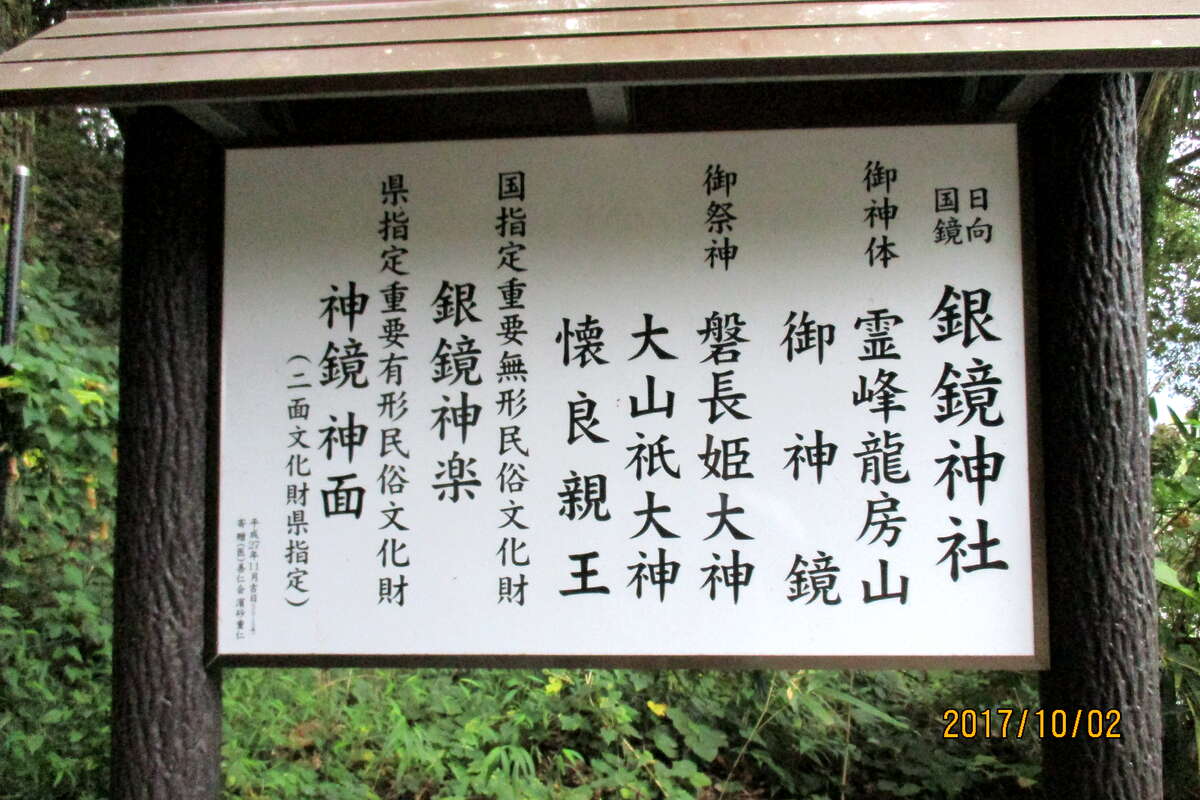 日向
国鏡
銀鏡神社
御神体
霊峰龍房山
御神鏡
御祭神
磐長姫大神
大山祇大神
懐良親王
国指定重要無形民俗文化財
銀鏡神楽
県指定重要有形民俗文化財
神鏡 神面
(二面文化財県指定)
平成27年11月吉日
寄贈(医)善仁会 濱砂重仁
2017/10/02